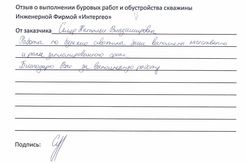 Отзыв о выполнении буровых работ и обустройства скважины
Инженерной Фирмой «Интергео»
От заказчика Наталии Владимировны
Работа по бурению скважины была выполнена качественно
и ранее запланированного срока
Благодарю Вас за выполненную работу
Подпись: